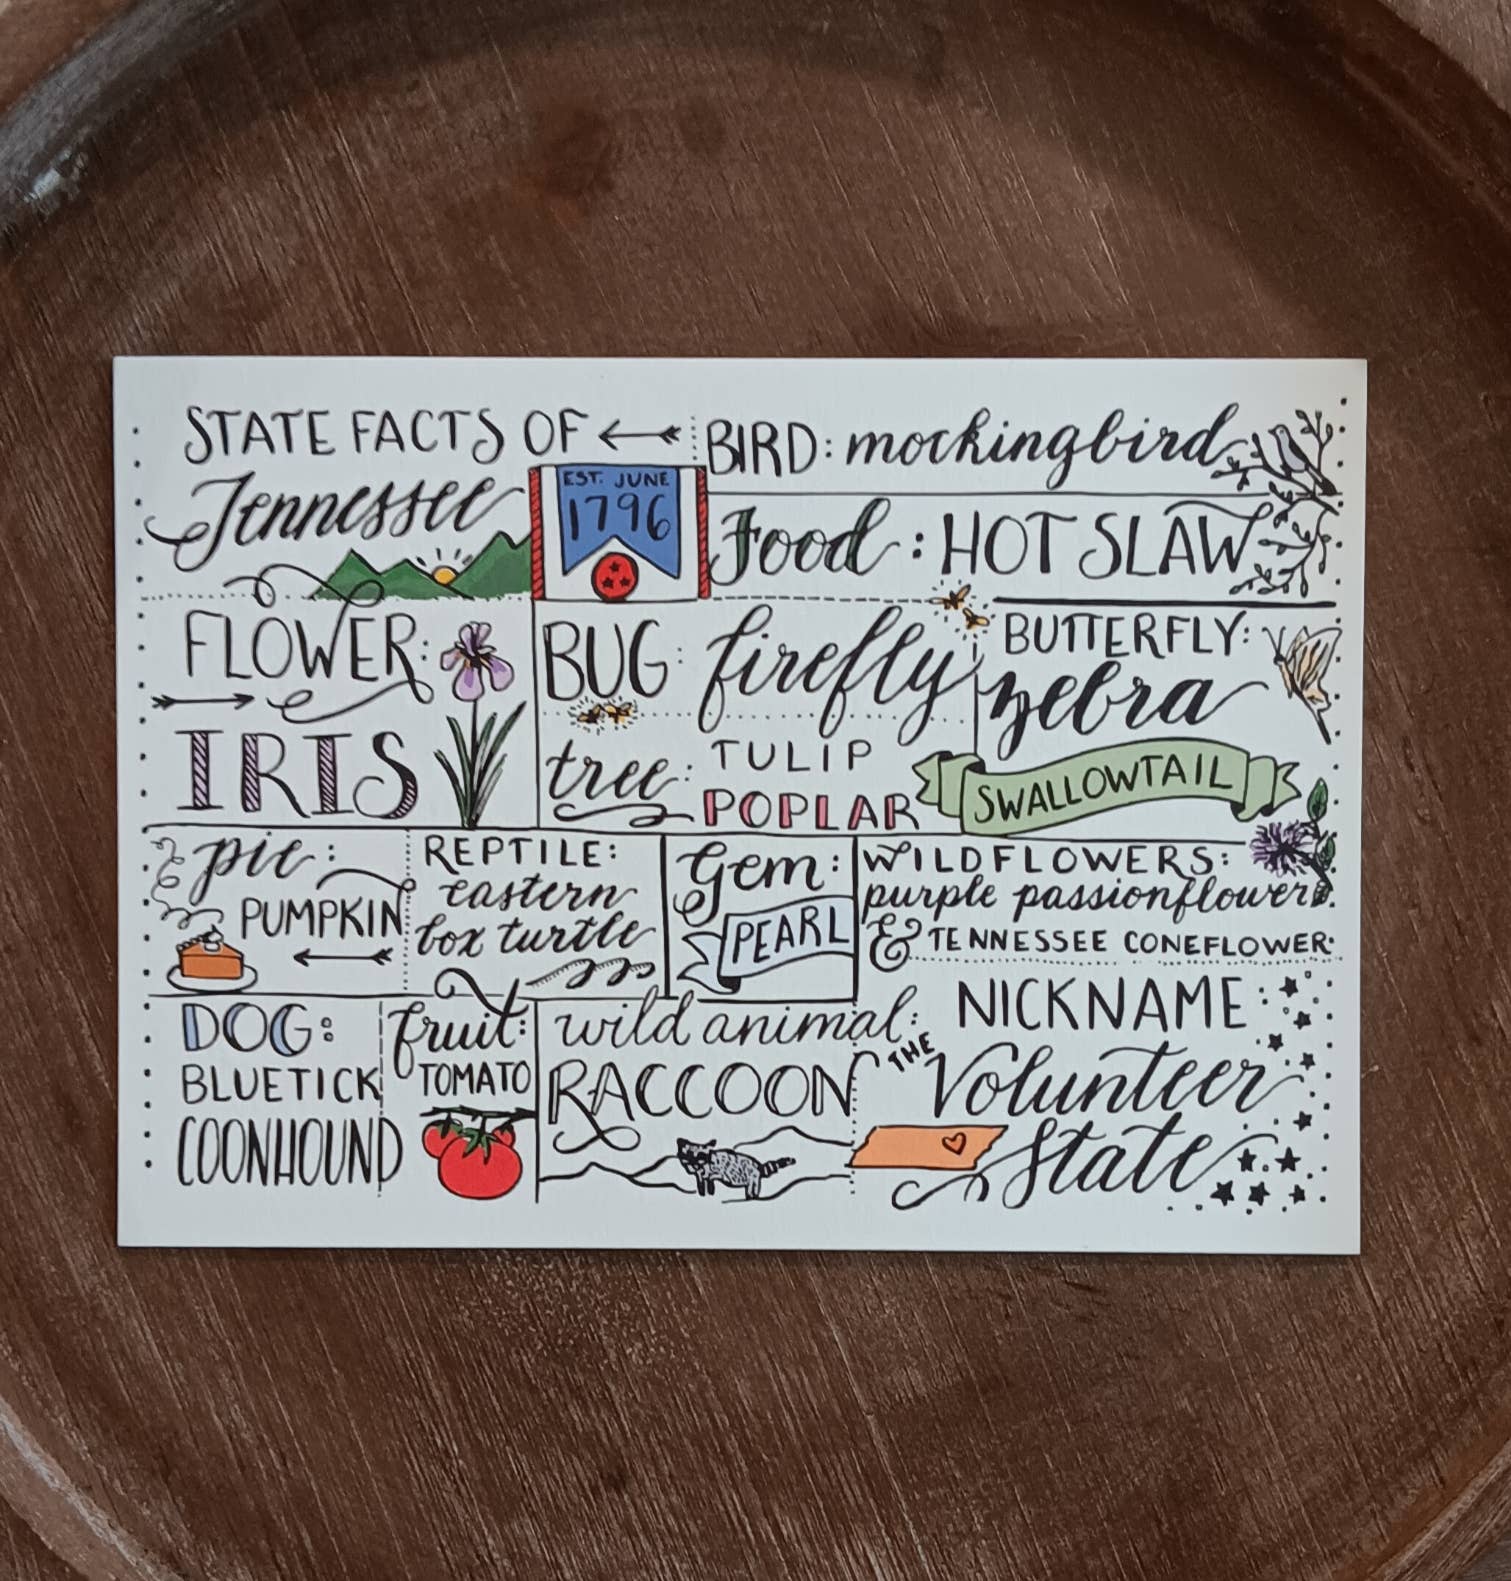 STATE FACTS OF
Tennessee
EST. JUNE
1796
BIRD: mockingbird
Food: HOT SLAW
FLOWER:
IRIS
BUG: firefly
tree: TULIP
POPLAR
BUTTERFLY:
zebra
SWALLOWTAIL
pie:
PUMPKIN
REPTILE:
eastern
box turtle
Gem:
PEARL
WILDFLOWERS:
purple passionflower
& TENNESSEE CONEFLOWER
DOG:
BLUETICK
COONHOUND
fruit:
TOMATO
wild animal:
RACCOON
NICKNAME:
THE
Volunteer
State